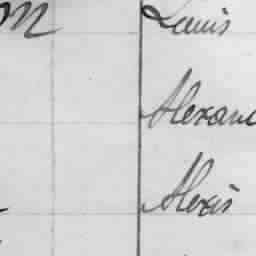 m Louis
Alexan
Alexis